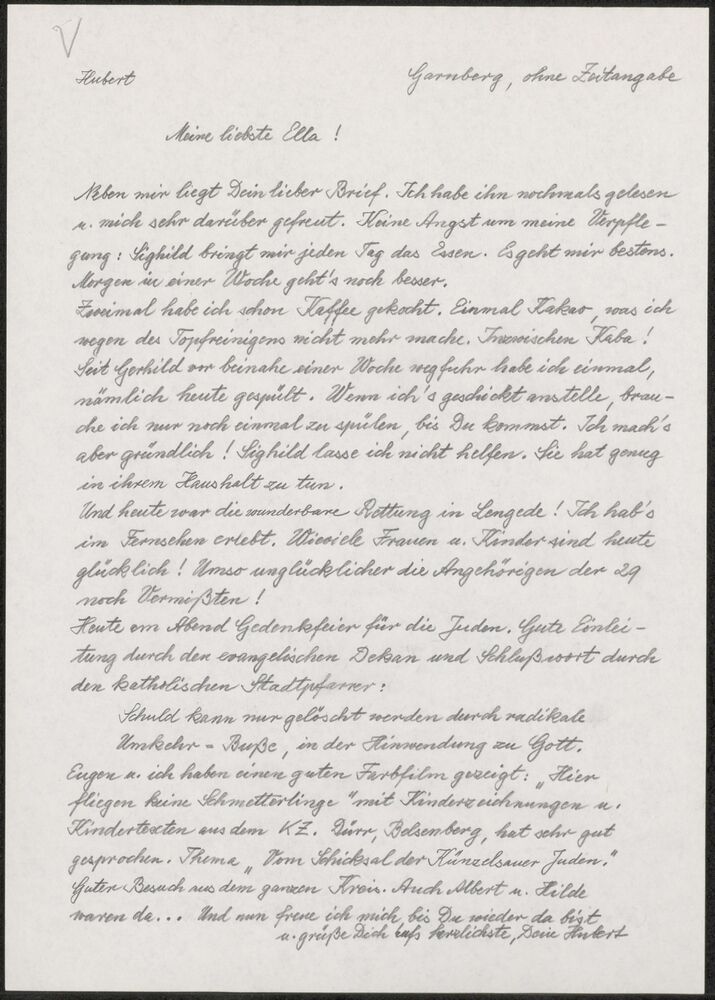 V
Hubert
Garnberg, ohne Zeitangabe
Meine liebste Ella !
Neben mir liegt Dein lieber Brief. Ich habe ihn nochmals gelesen
u. mich sehr darüber gefreut. Keine Angst um meine Verpfle-
gung : Sighild bringt mir jeden Tag das Essen. Es geht mir bestens.
Morgen in einer Woche geht's noch besser.
Zweimal habe ich schon Kaffee gekocht. Einmal Kakao, was ich
wegen des Topfreinigens nicht mehr mache. Inzwischen Kaba !
Seit Gerhild vor beinahe einer Woche wegfuhr habe ich einmal,
nämlich heute gespült. Wenn ich's geschickt anstelle, brau-
che ich nur noch einmal zu spülen, bis Du kommst. Ich mach's
aber gründlich ! Sighild lasse ich nicht helfen. Sie hat genug
in ihrem Haushalt zu tun.
Und heute war die wunderbare Rettung in Lengede ! Ich hab's
im Fernsehen erlebt. Wieviele Frauen u. Kinder sind heute
glücklich ! Umso unglücklicher die Angehörigen der 29
noch Vermißten !
Heute am Abend Gedenkfeier für die Juden. Gute Einlei-
tung durch den evangelischen Dekan und Schlußwort durch
den katholischen Stadtpfarrer :
Schuld kann nur gelöscht werden durch radikale
Umkehr - Buße, in der Hinwendung zu Gott.
Eugen u. ich haben einen guten Farbfilm gezeigt : „Hier
fliegen keine Schmetterlinge" mit Kinderzeichnungen u.
Kindertexten aus dem KZ. Dürr, Belsenberg, hat sehr gut
gesprochen. Thema „Vom Schicksal der Künzelsauer Juden."
Guter Besuch aus dem ganzen Kreis. Auch Albert u. Hilde
waren da... Und nun freue ich mich, bis Du wieder da bist
u. grüße Dich aufs herzlichste, Dein Hubert